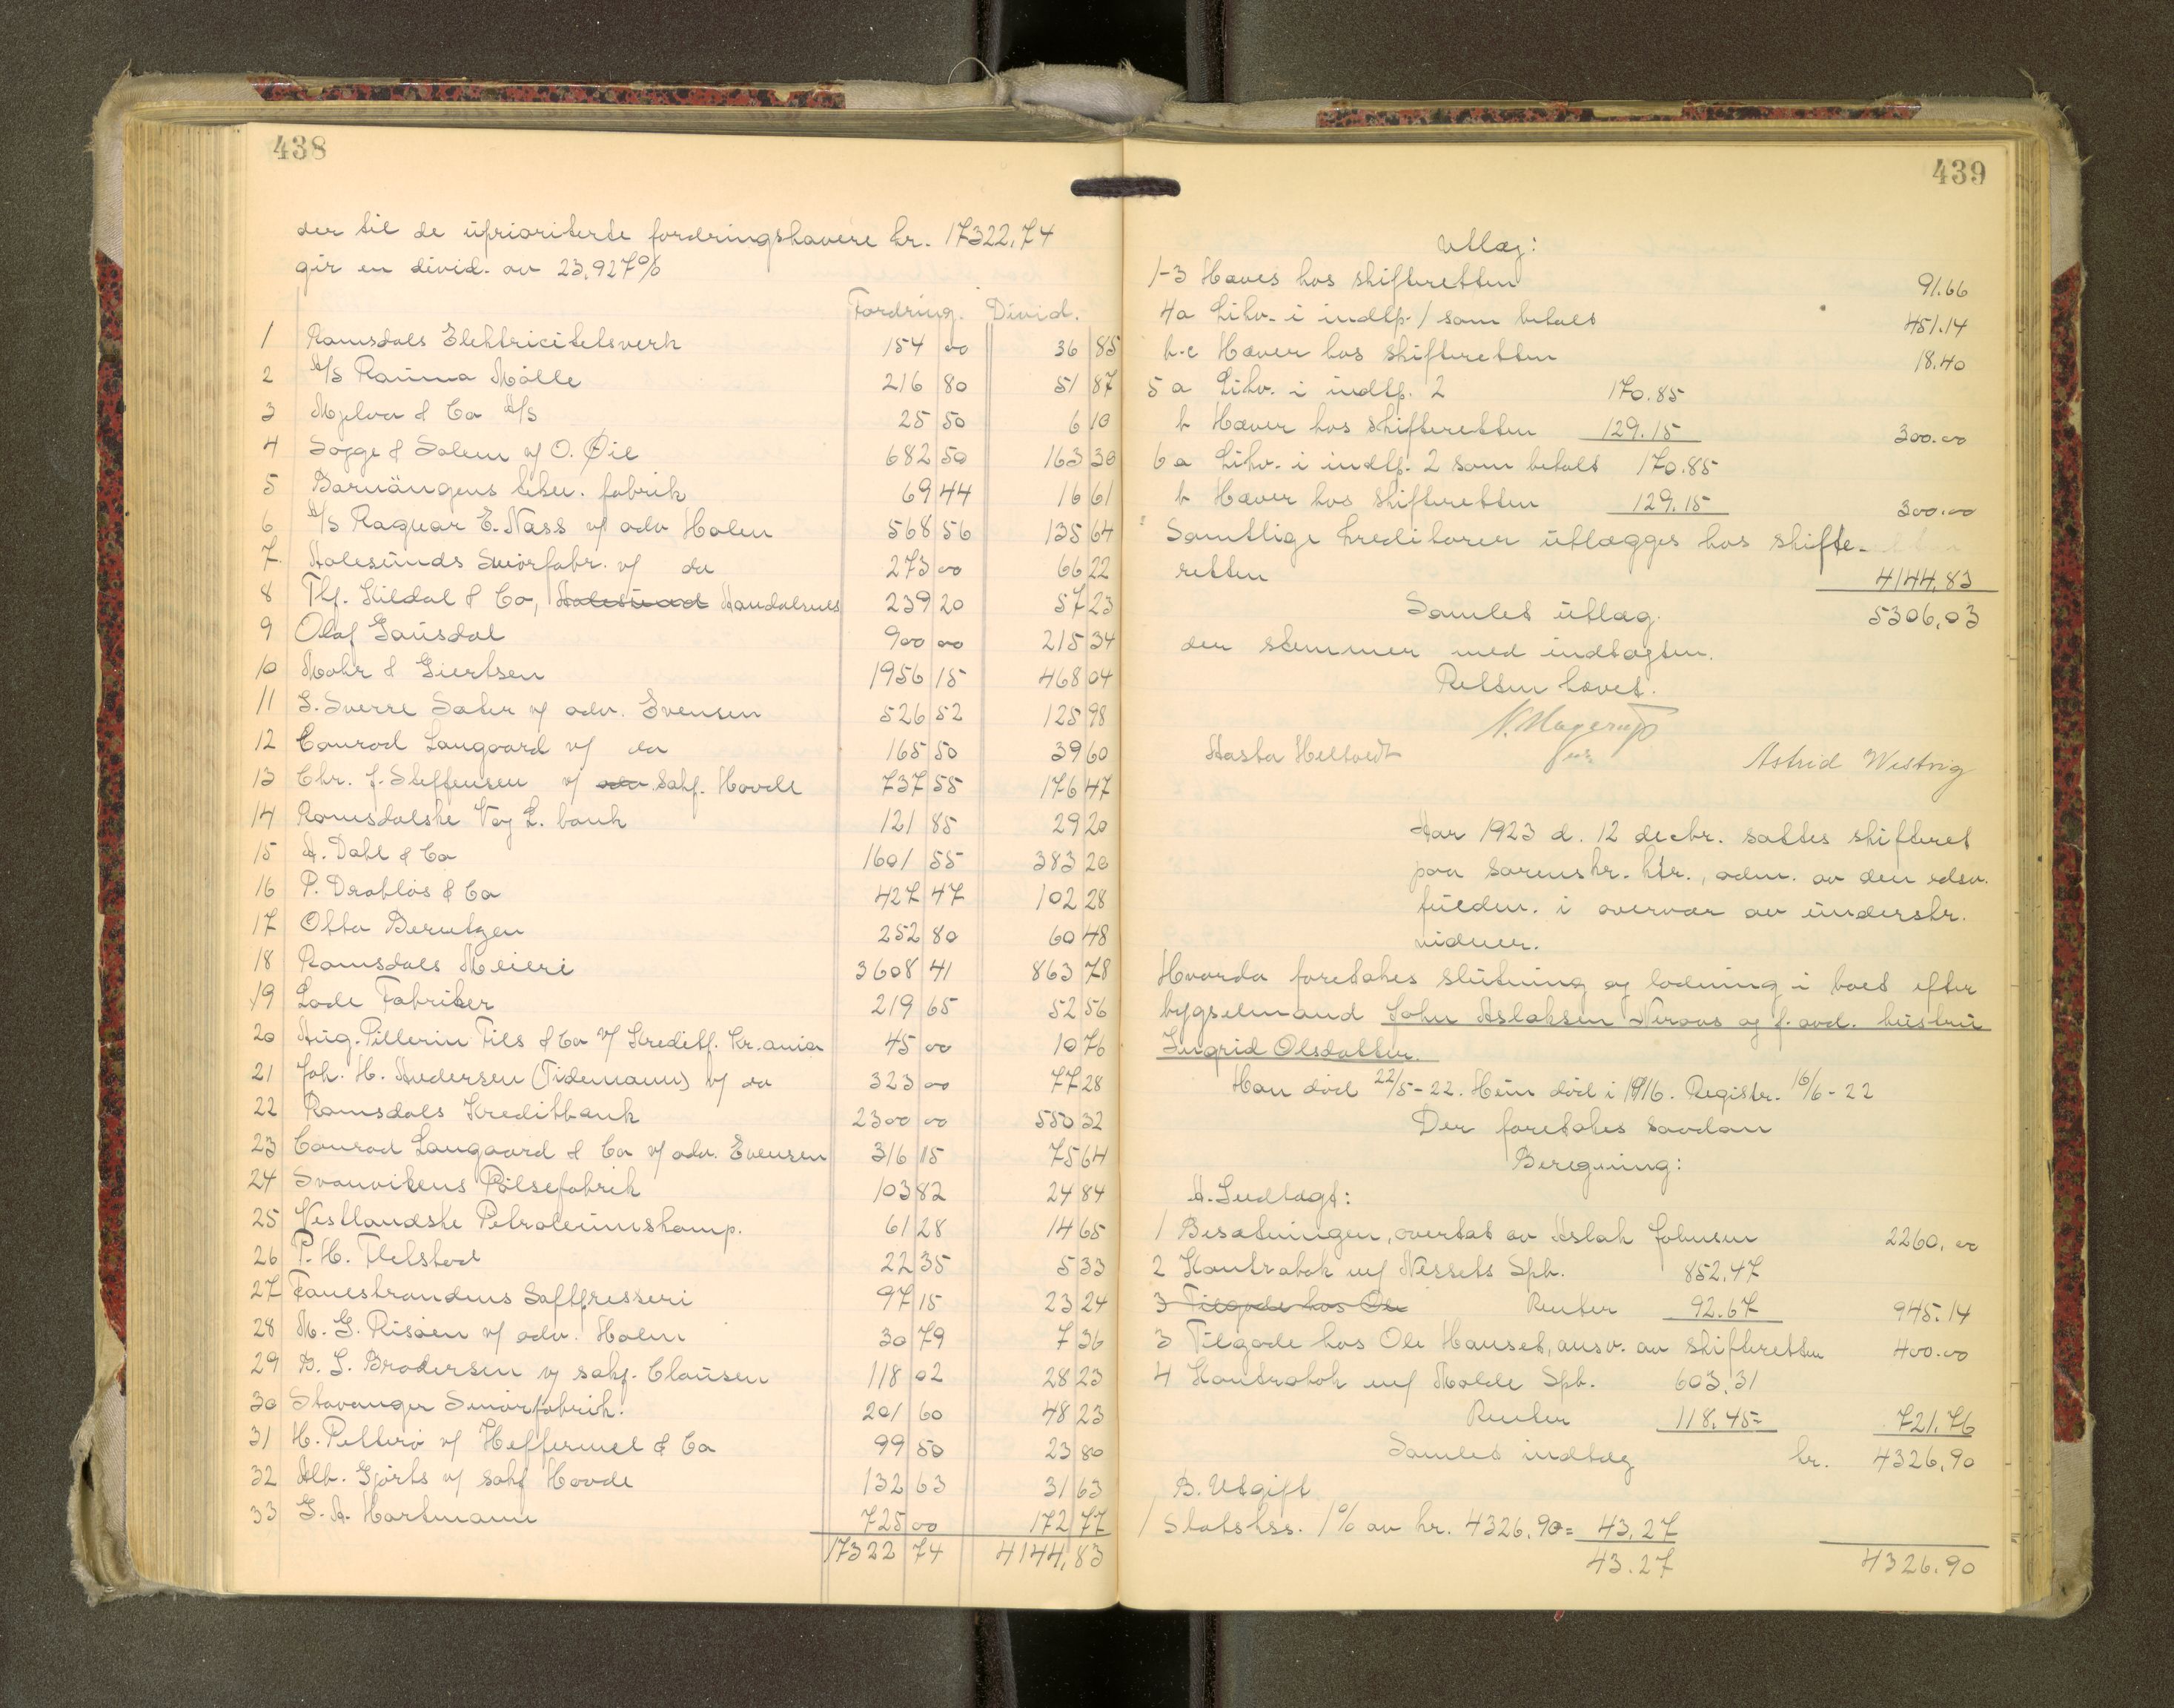 438
der til de uprioriterte fordringshavere kr. 17322,74
gir en divid. av 23,927%
Fordring. Divid.
1 Romsdals Elektricitetsverk 154 00 36 85
2 A/S Rauma Mölle 216 80 51 87
3 Mjelva & Co A/S 25 50 6 10
4 Sogge & Solem v/ O. Øie 682 50 163 30
5 Barnängens tekn. fabrik 69 44 16 61
6 A/S Ragnar E. Næss v/ adv Holen 568 56 135 64
7. Aalesunds Smörfabr. v/ do 273 00 66 22
8 Thj. Kildal & Co, Aalesund Aandalsnes 239 20 57 23
9 Olaf Gausdal 900 00 215 34
10 Mohr & Giertsen 1956 15 468 04
11 G. Sverre Sæter v/ adv. Evensen 526 52 125 98
12 Conrad Langaard v/ do 165 50 39 60
13 Chr. J. Steffensen v/ adv. Sakf. Hovde 737 55 176 47
14 Romsdalske Vex L. bank 121 85 29 20
15 A. Dahl & Co 1601 55 383 20
16 P. Drabløs & Co 427 47 102 28
17 Otto Berntzen 252 80 60 48
18 Romsdals Meieri 3608 41 863 78
19 Lade Fabriker 219 65 52 56
20 Aug. Pellerin Fils & Co v/ Kreditf. Kr.ania 45 00 10 76
21 Joh. H. Andersen (Tidemann) v/ do 323 00 77 28
22 Romsdals Kreditbank 2300 00 550 32
23 Conrad Langaard & Co v/ adv. Evensen 316 15 75 64
24 Svanvikens Pölsefabrik 103 82 24 84
25 Vestlandske Petroleumskomp. 61 28 14 65
26 P. H. Flelstad 22 35 5 33
27 Fanestrandens Saftpresseri 97 15 23 24
28 M. G. Risöen v/ adv. Holen 30 79 7 36
29 B. L. Brodersen v/ sakf. Clausen 118 02 28 23
30 Stavanger Smörfabrik. 201 60 48 23
31 H. Petterö v/ Heffermel & Co 99 50 23 80
32 Alb. Gjörts v/ sakf Hovde 132 63 31 63
33 G. A. Hartmann 725 00 172 77
17322 74 4144,83
439
Utlæg:
1-3 Hæves hos skifteretten 91.66
4a Likv. i indtp. 1 som betalt 451.14
b-c Hæver hos skifteretten 18.40
5 a Likv. i indtp. 2 170.85
b Hæver hos skifteretten 129.15 300.00
6 a Likv. i indtp. 2 som betalt 170.85
b Hæver hos skifteretten 129.15 300.00
Samtlige kreditorer utlægges hos skifte-
retten 4144,83
Samlet utlæg. 5306,03
der stemmer med indtægten.
Retten hævet.
N. Magerup
fm.
Aasta Heltvedt Astrid Westvig
Aar 1923 d. 12 decbr. sattes skifteret
paa sorenskr. ktr., adm. av den edsv.
fuldm. i overvær av underskr.
vidner.
Hvorda foretokes slutning og lodning i boet efter
bygselmand John Aslaksen Neraas og f. avd. hustru
Ingrid Olsdatter.
Han död 22/5-22. Hun död i 1916. Registr. 16/6-22
Der foretokes saadan
Beregning:
A. Indtægt:
1 Besætningen, overtat av Aslak Johnsen 2260,00
2 Kontrabok m/ Nessets Spb. 852,47
3 Tilgode hos Ole Renter 92.67 945.14
3 Tilgode hos Ole Hanset, ansv. av skifteretten 400.00
4 Kontrabok m/ Molde Spb. 603,31
Renter 118.45= 721.76
Samlet indtæg kr. 4326,90
B. Utgift
1 Statskss. 1% av kr. 4326,90= 43,27
43.27 4326.90